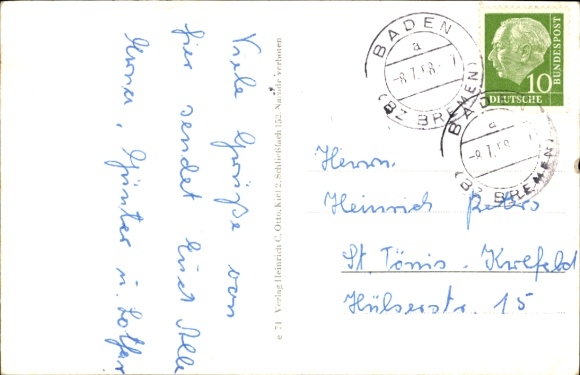 Viele Grüße von
hier sendet Euch Alle
Günter u. Lothar
e 71 Verlag Heinrich C. Otto, Kiel 2, Schließfach 152, Nachdr. verboten
BADEN
a
-8.7.58.-
(BZ BREMEN)
BADEN
a
-8.7.58.-
(BZ BREMEN)
DEUTSCHE
BUNDESPOST
10
Herrn
Heinrich Peters
St Tönis - Krefeld
Hülserstr. 15